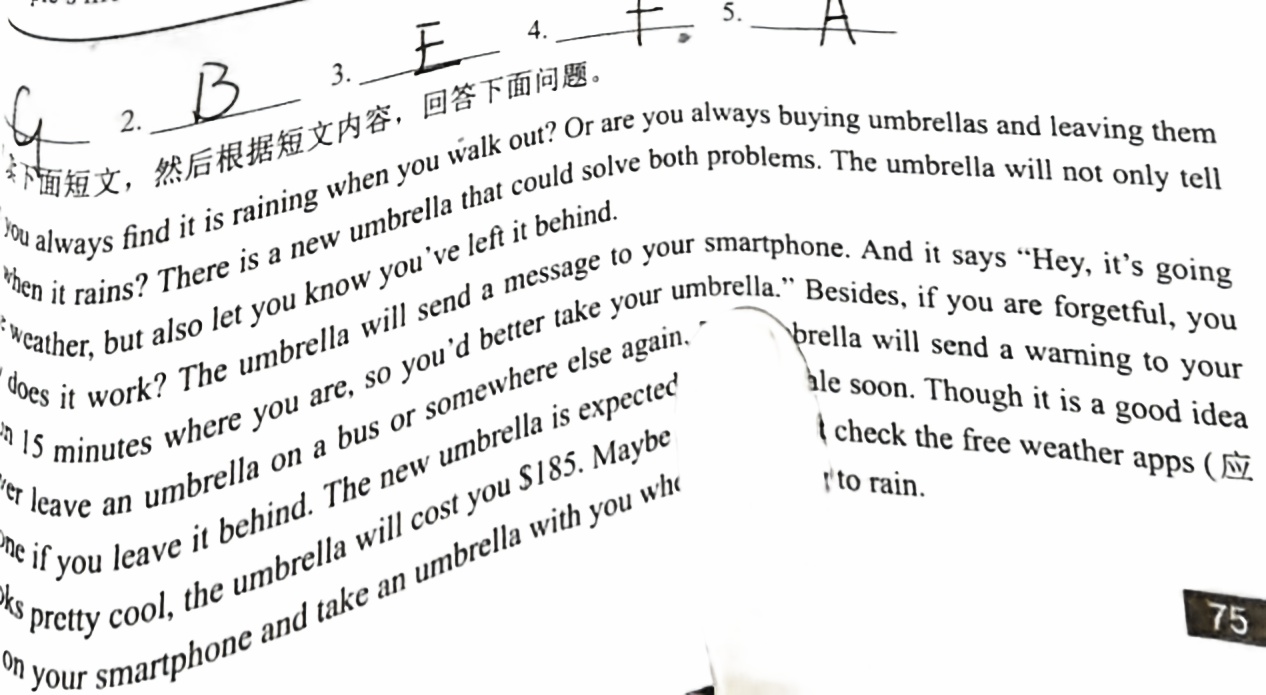 G 2. B 3. E 4. F 5. A
下面短文，然后根据短文内容，回答下面问题。
you always find it is raining when you walk out? Or are you always buying umbrellas and leaving them
when it rains? There is a new umbrella that could solve both problems. The umbrella will not only tell
weather, but also let you know you've left it behind.
does it work? The umbrella will send a message to your smartphone. And it says “Hey, it's going
15 minutes where you are, so you'd better take your umbrella.” Besides, if you are forgetful, you
leave an umbrella on a bus or somewhere else again. brella will send a warning to your
if you leave it behind. The new umbrella is expected ale soon. Though it is a good idea
pretty cool, the umbrella will cost you $185. Maybe check the free weather apps (应
on your smartphone and take an umbrella with you to rain.
75